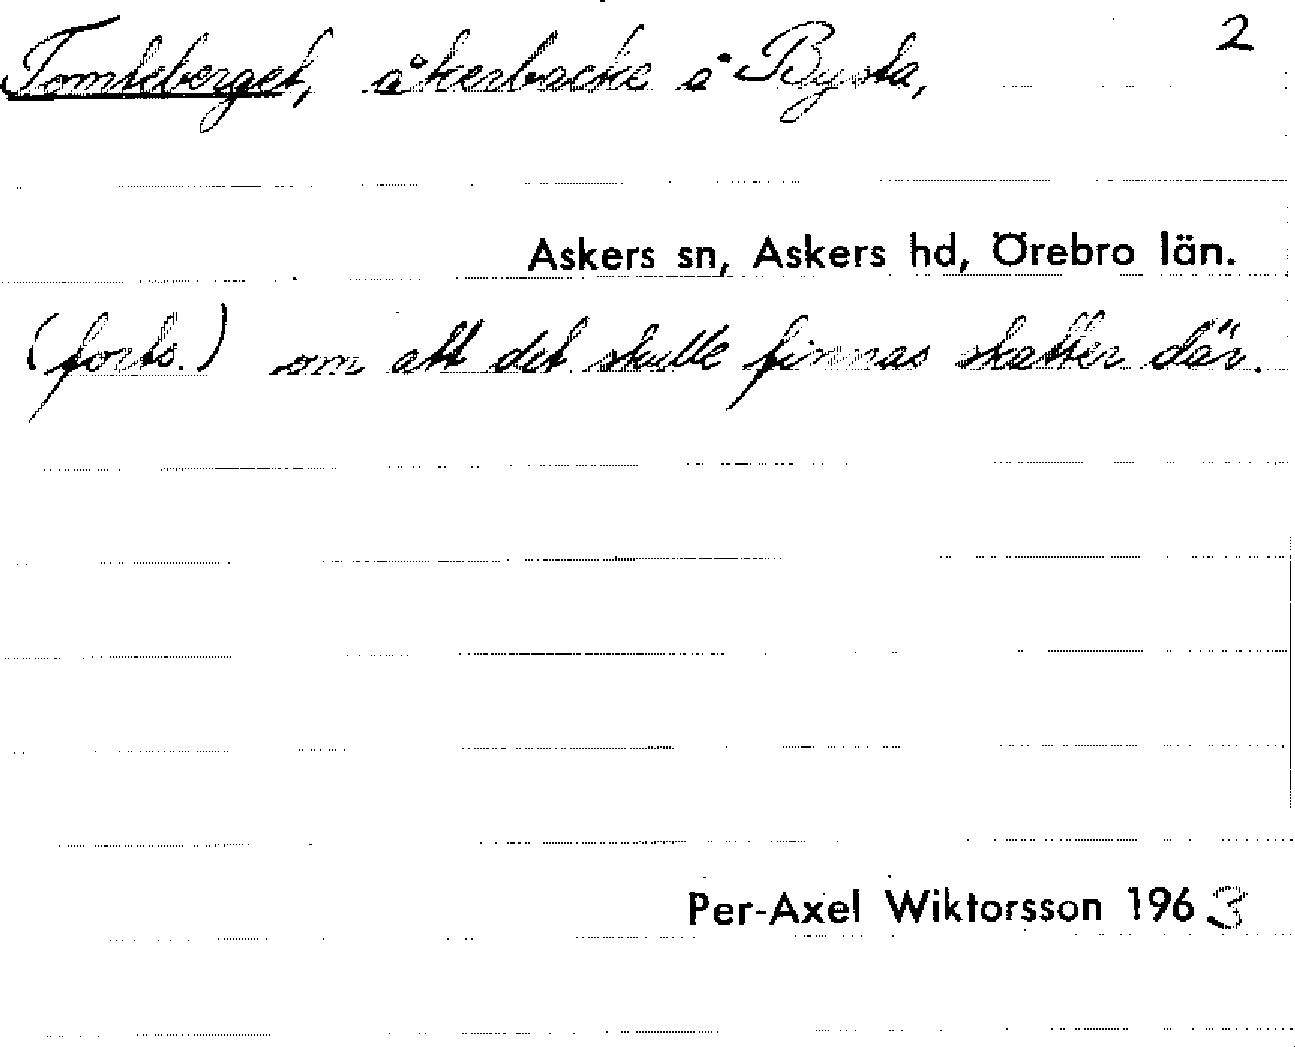 Tomteberget, åkerbacke å Bysta, 2
Askers sn, Askers hd, Örebro län.
(forts.) om att det skulle finnas skatter där.
Per-Axel Wiktorsson 1963